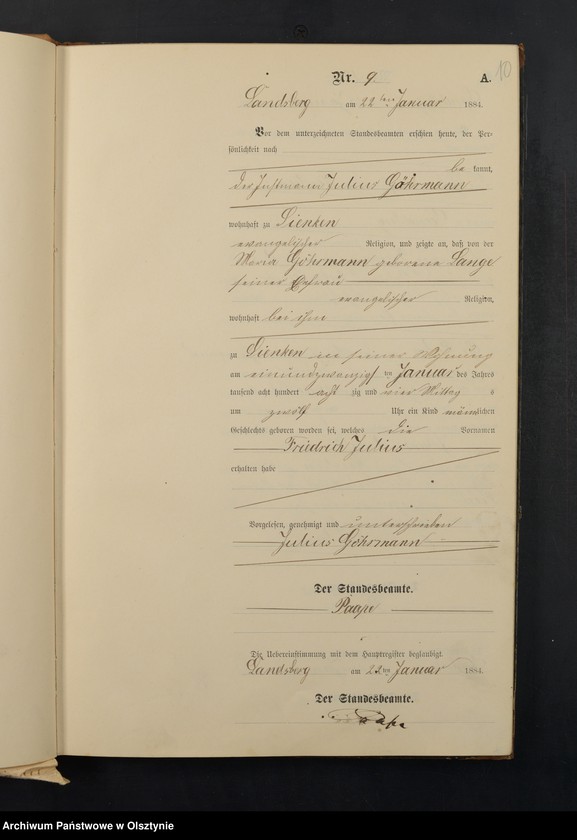 10
Nr. 9 A.
Landsberg am 22ten Januar 1884.
Vor dem unterzeichneten Standesbeamten erschien heute, der Per-
sönlichkeit nach
be kannt,
der Instmann Julius Göhrmann
wohnhaft zu Lienken
evangelischer Religion, und zeigte an, daß von der
Maria Göhrmann geborene Lange
seiner Ehefrau
evangelischer Religion,
wohnhaft bei ihm
zu Lienken in seiner Wohnung
am einundzwanzigsten Januar des Jahres
tausend acht hundert achtzig und vier Mittags
um zwölf Uhr ein Kind männlichen
Geschlechts geboren worden sei, welches die Vornamen
Friedrich Julius
erhalten habe
Vorgelesen, genehmigt und unterschrieben
Julius Göhrmann
Der Standesbeamte.
Paape
Die Uebereinstimmung mit dem Hauptregister beglaubigt.
Landsberg am 22ten Januar 1884.
Der Standesbeamte.
Paape
Archiwum Państwowe w Olsztynie